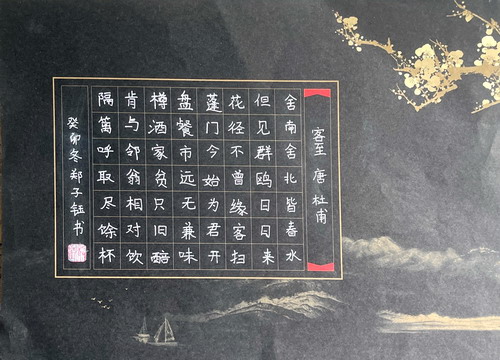 客至 唐 杜甫
舍南舍北皆春水
但见群鸥日日来
花径不曾缘客扫
蓬门今始为君开
盘餐市远无兼味
樽酒家贫只旧醅
肯与邻翁相对饮
隔篱呼取尽馀杯
癸卯冬郑子钰书